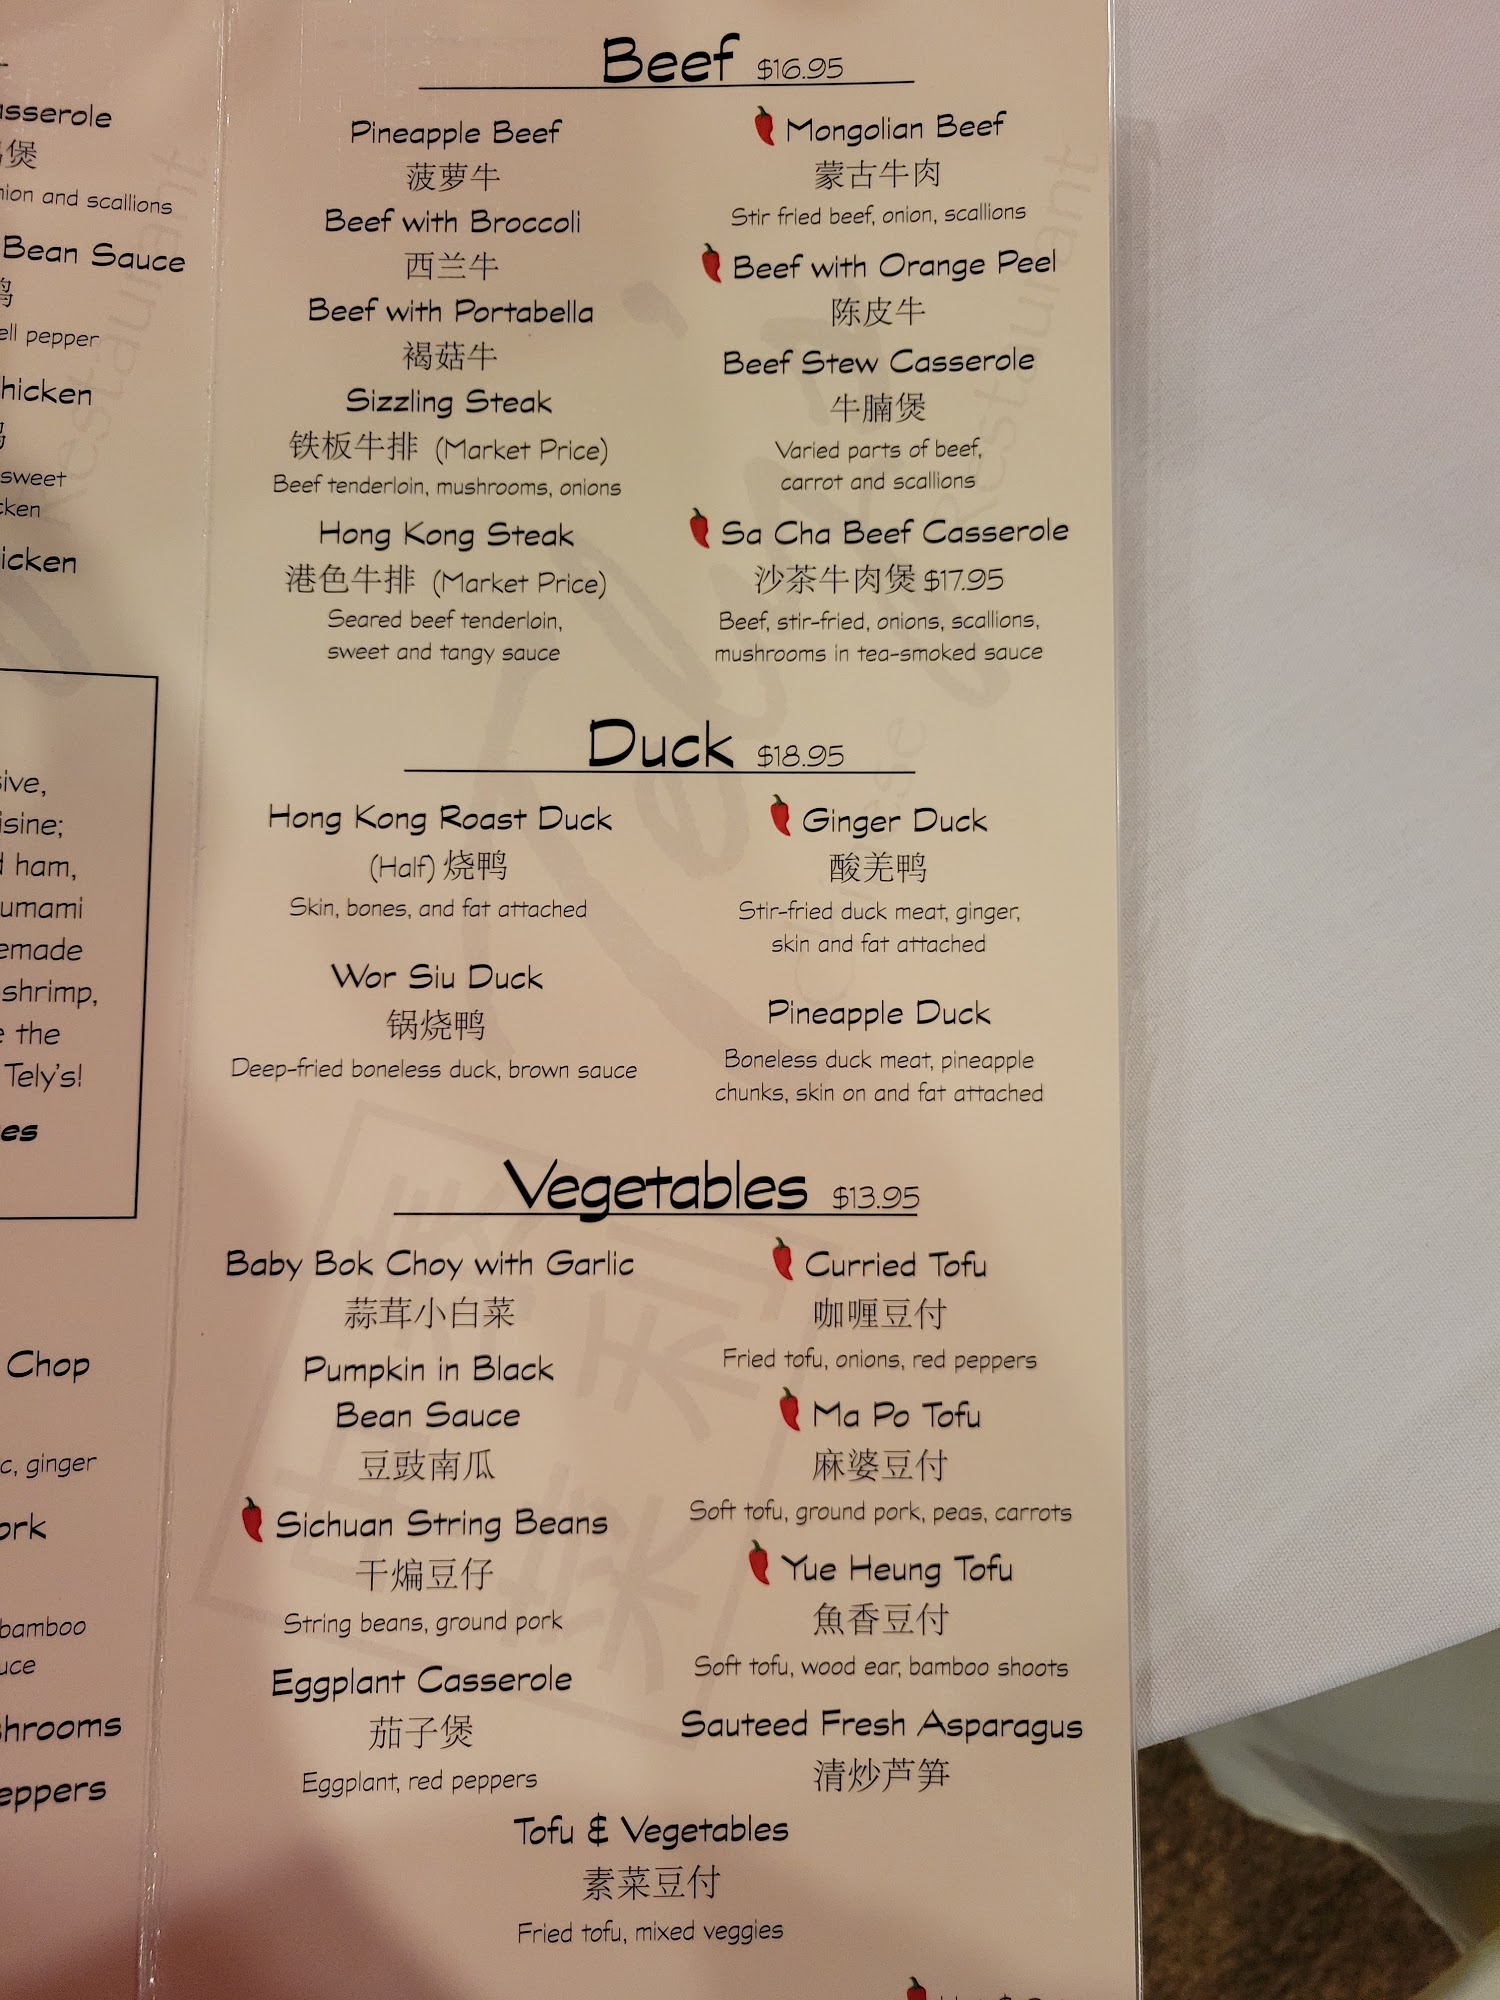 asserole
煲
nion and scallions
Bean Sauce
ell pepper
hicken
sweet
cken
icken
sive,
isine;
d ham,
umami
emade
shrimp,
e the
Tely's!
es
Chop
c, ginger
ork
bamboo
uce
shrooms
eppers
Beef $16.95
Pineapple Beef
菠萝牛
Beef with Broccoli
西兰牛
Beef with Portabella
褐菇牛
Sizzling Steak
铁板牛排 (Market Price)
Beef tenderloin, mushrooms, onions
Hong Kong Steak
港色牛排 (Market Price)
Seared beef tenderloin,
sweet and tangy sauce
Mongolian Beef
蒙古牛肉
Stir fried beef, onion, scallions
Beef with Orange Peel
陈皮牛
Beef Stew Casserole
牛腩煲
Varied parts of beef,
carrot and scallions
Sa Cha Beef Casserole
沙茶牛肉煲 $17.95
Beef, stir-fried, onions, scallions,
mushrooms in tea-smoked sauce
Duck $18.95
Hong Kong Roast Duck
(Half) 烧鸭
Skin, bones, and fat attached
Wor Siu Duck
锅烧鸭
Deep-fried boneless duck, brown sauce
Ginger Duck
酸羌鸭
Stir-fried duck meat, ginger,
skin and fat attached
Pineapple Duck
Boneless duck meat, pineapple
chunks, skin on and fat attached
Vegetables $13.95
Baby Bok Choy with Garlic
蒜茸小白菜
Pumpkin in Black
Bean Sauce
豆豉南瓜
Sichuan String Beans
干煸豆仔
String beans, ground pork
Eggplant Casserole
茄子煲
Eggplant, red peppers
Curried Tofu
咖喱豆付
Fried tofu, onions, red peppers
Ma Po Tofu
麻婆豆付
Soft tofu, ground pork, peas, carrots
Yue Heung Tofu
魚香豆付
Soft tofu, wood ear, bamboo shoots
Sauteed Fresh Asparagus
清炒芦笋
Tofu & Vegetables
素菜豆付
Fried tofu, mixed veggies
Restaurant
Restaurant